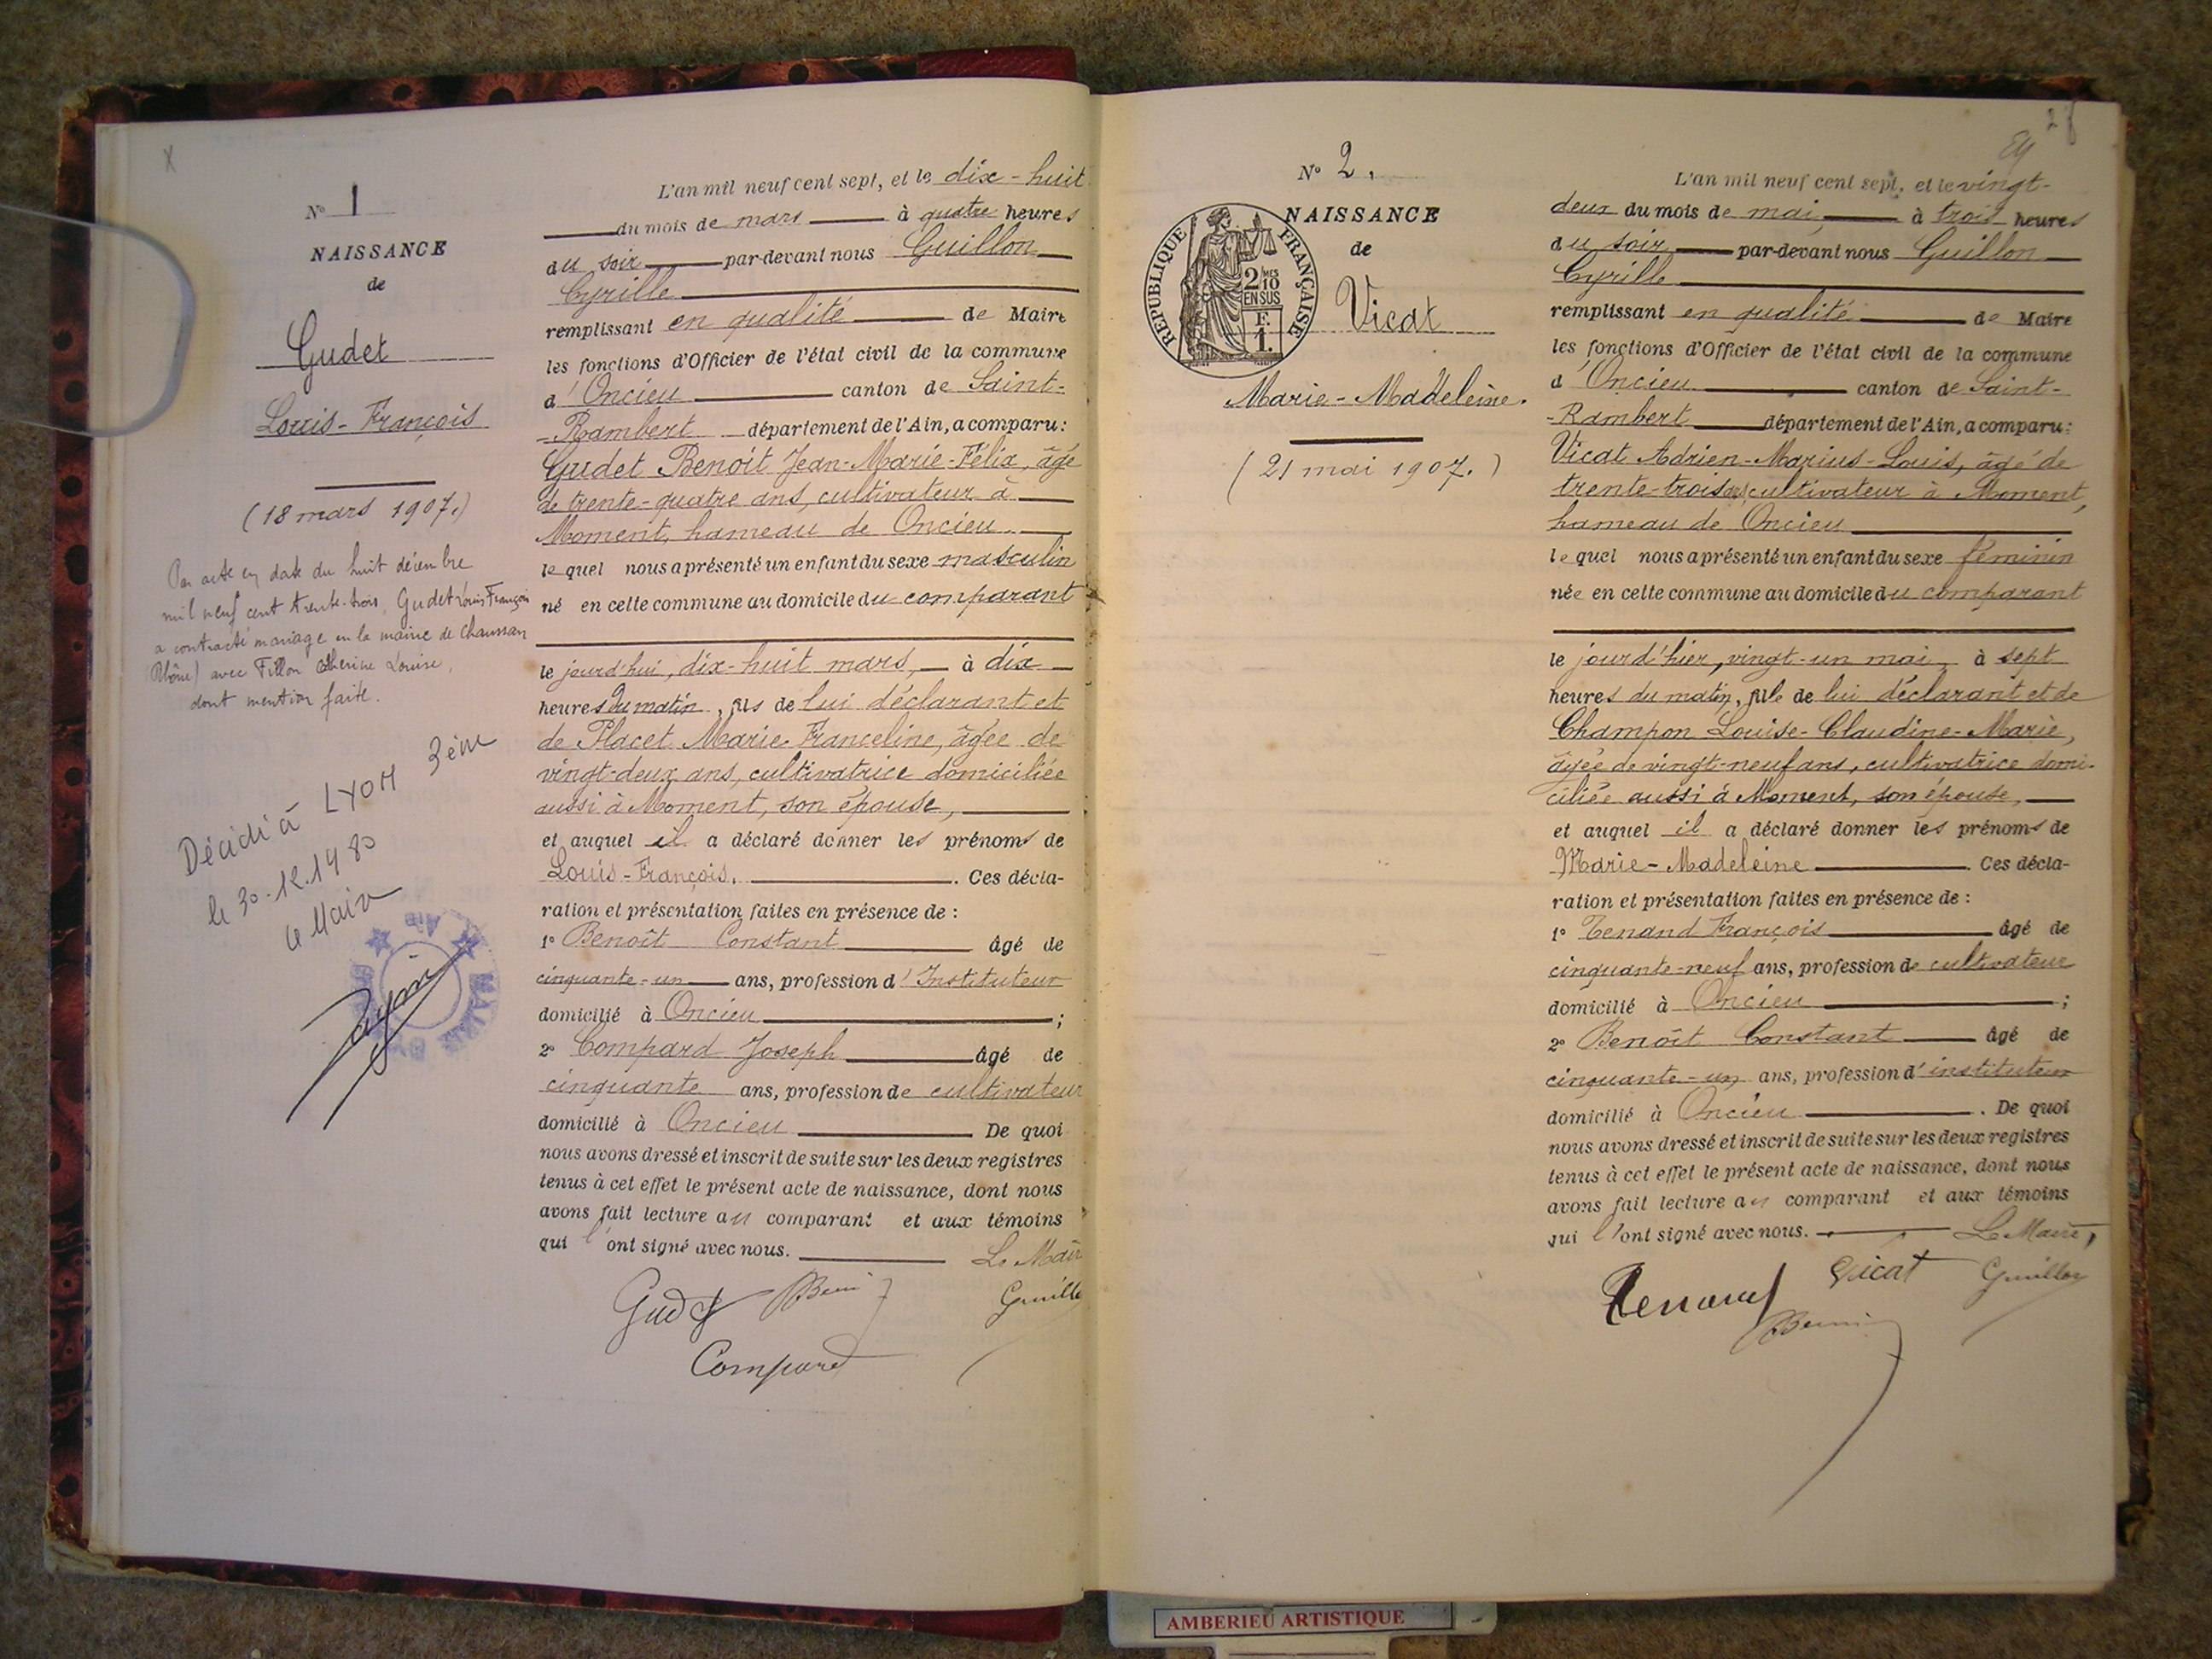 N° 1
NAISSANCE
de
Gudet
Louis-François
(18 mars 1907.)
Par acte en date du huit décembre
mil neuf cent trente-trois, Gudet Louis François
a contracté mariage en la mairie de Chaussan
(Rhône) avec Fillon Catherine Louise,
dont mention faite.
Décédé à LYON 3ème
le 30.12.1980
Le Maire
L'an mil neuf cent sept, et le dix-huit
du mois de mars à quatre heures
du soir par-devant nous Guillon
Cyrille
remplissant en qualité de Maire
les fonctions d'Officier de l'état civil de la commune
d'Oncieu canton de Saint-
-Rambert département de l'Ain, a comparu:
Gudet Benoit Jean-Marie-Félix, âgé
de trente-quatre ans, cultivateur à
Moment, hameau de Oncieu
lequel nous a présenté un enfant du sexe masculin
né en cette commune au domicile du comparant
le jourd'hui, dix-huit mars, à dix
heures du matin, fils de lui déclarant et
de Placet Marie Franceline, âgée de
vingt-deux ans, cultivatrice domiciliée
aussi à Moment, son épouse,
et auquel il a déclaré donner les prénoms de
Louis-François. . Ces décla-
ration et présentation faites en présence de :
1° Benoît Constant âgé de
cinquante-un ans, profession d'Instituteur
domicilié à Oncieu ;
2° Compard Joseph âgé de
cinquante ans, profession de cultivateur
domicilié à Oncieu De quoi
nous avons dressé et inscrit de suite sur les deux registres
tenus à cet effet le présent acte de naissance, dont nous
avons fait lecture au comparant et aux témoins
qui l'ont signé avec nous. Le Maire
Gudet
Compard
N° 2.
RÉPUBLIQUE FRANÇAISE
2/10 MES
EN SUS
F.
1.
NAISSANCE
de
Vicat
Marie-Madeleine.
(21 mai 1907.)
L'an mil neuf cent sept, et le vingt-
deux du mois de mai, à trois heures
du soir par-devant nous Guillon
Cyrille
remplissant en qualité de Maire
les fonctions d'Officier de l'état civil de la commune
d'Oncieu canton de Saint-
-Rambert département de l'Ain, a comparu:
Vicat Adrien-Marius-Louis, âgé de
trente-trois ans cultivateur à Moment,
hameau de Oncieu
lequel nous a présenté un enfant du sexe féminin
née en cette commune au domicile du comparant
le jourd'hier, vingt-un mai, à sept
heures du matin, fille de lui déclarant et de
Champon Louise-Claudine-Marie,
âgée de vingt-neuf ans, cultivatrice domi-
ciliée aussi à Moment, son épouse,
et auquel il a déclaré donner les prénoms de
Marie-Madeleine . Ces décla-
ration et présentation faites en présence de :
1° Tenand François âgé de
cinquante-neuf ans, profession de cultivateur
domicilié à Oncieu ;
2° Benoît Constant âgé de
cinquante-un ans, profession d'instituteur
domicilié à Oncieu . De quoi
nous avons dressé et inscrit de suite sur les deux registres
tenus à cet effet le présent acte de naissance, dont nous
avons fait lecture au comparant et aux témoins
qui l'ont signé avec nous. Le Maire,
Tenand Vicat Guillon
AMBERIEU ARTISTIQUE